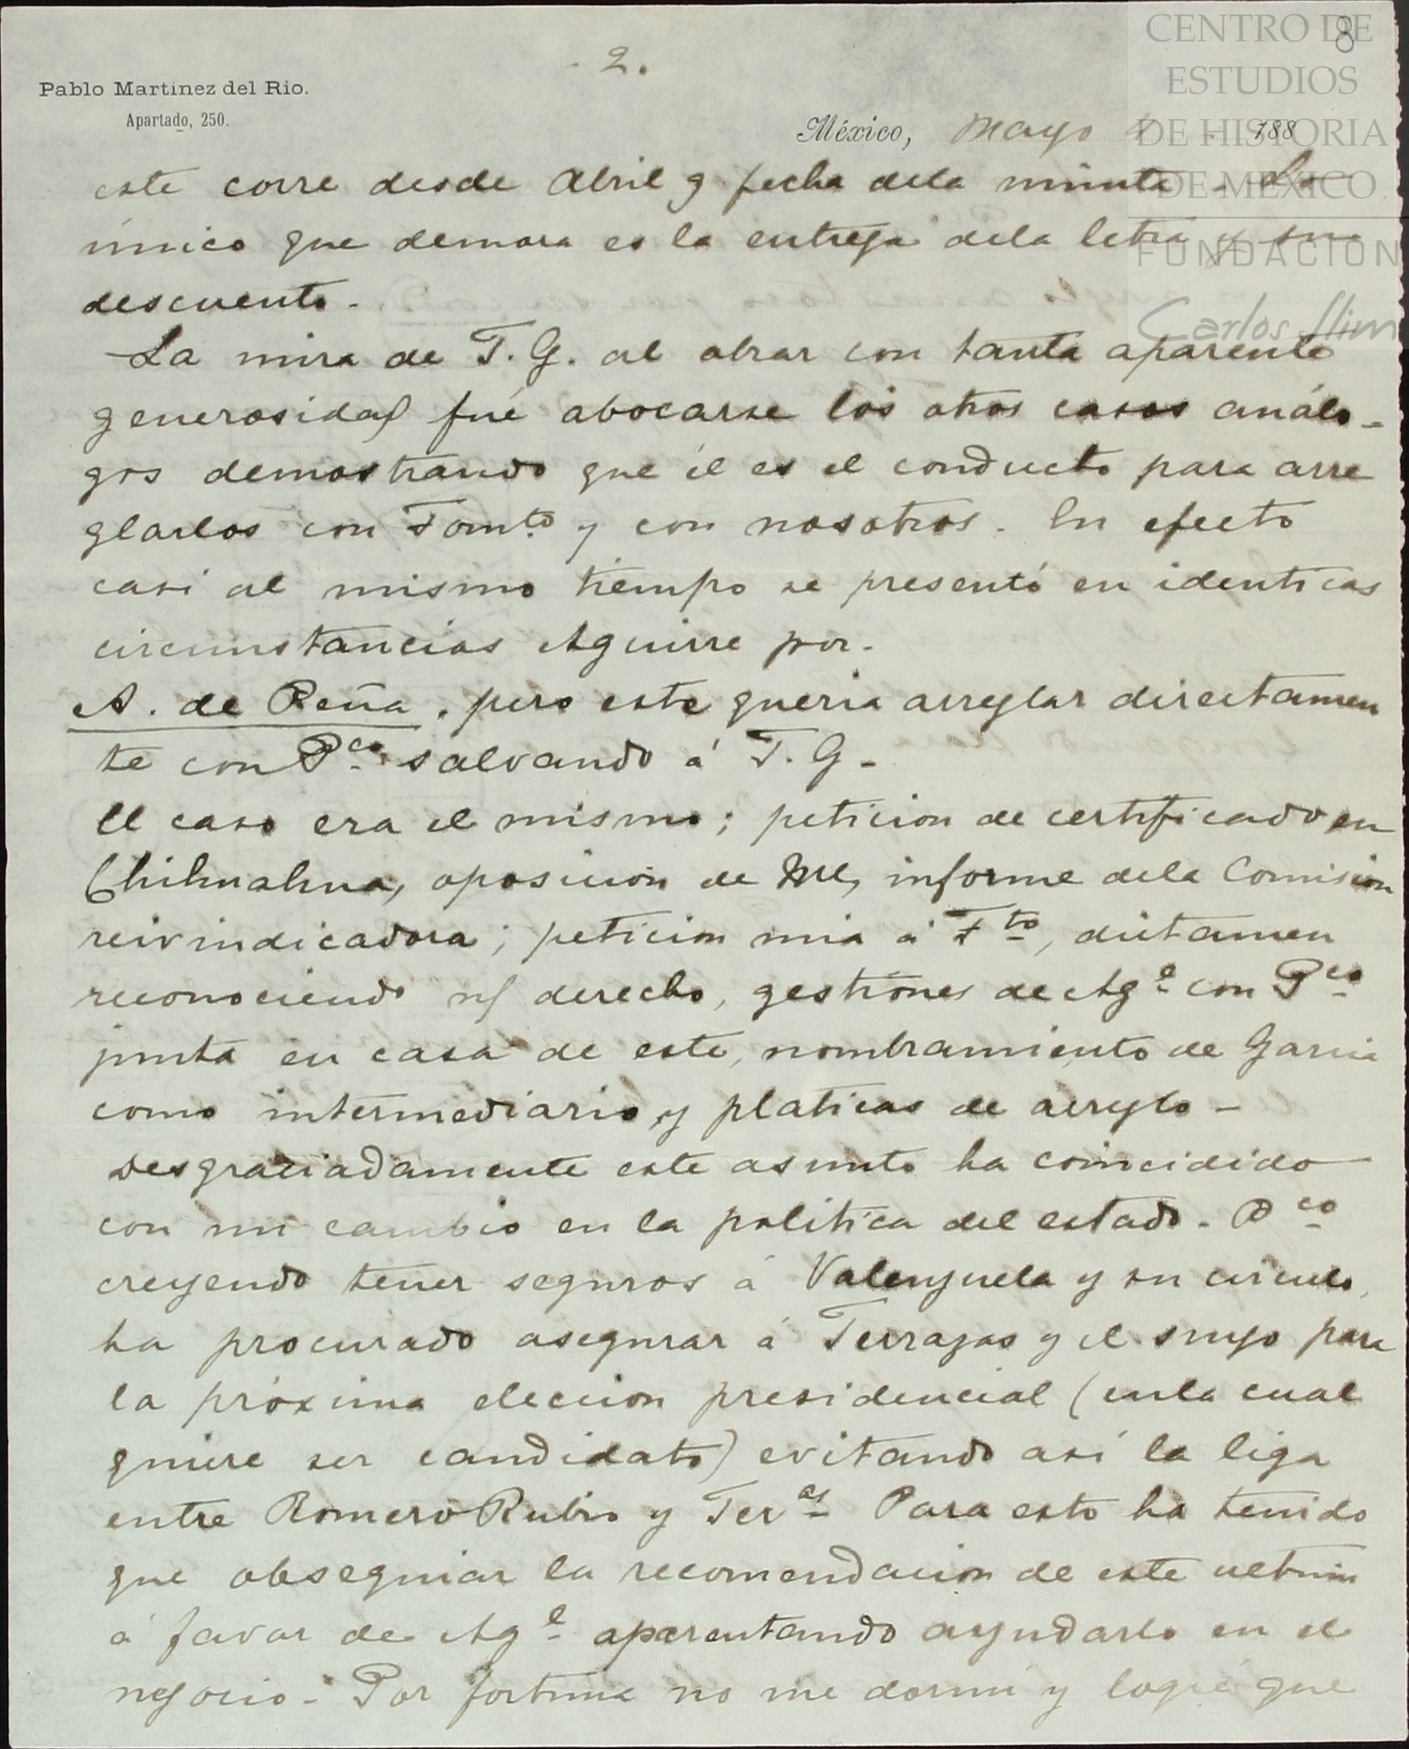 CENTRO DE
ESTUDIOS
DE HISTORIA
DE MEXICO
FUNDACION
Carlos Slim
8
2.
Pablo Martinez del Rio.
Apartado, 250.
México, Mayo 188
este corre desde Abril 9 fecha dela minuta - Lo
único que demora es la entrega dela letra y su
descuento.
La mira de T. G. al obrar con tanta aparente
generosidad fué abocarse los otros casos análo-
gos demostrando que él es el conducto para arre
glarlos con Fomto y con nosotros. En efecto
casi al mismo tiempo se presentó en identicas
circunstancias Aguirre por.
A. de Peña. pero este queria arreglar directamen
te con Pco salvando á T. G.
El caso era el mismo; peticion de certificado en
Chihuahua, oposicion de Ml, informe dela Comision
reivindicadora; peticion mia á Fto, dictamen
reconociendo n/ derecho, gestiones de Age con Pco
junta en casa de este, nombramiento de Garcia
como intermediario y platicas de arreglo -
Desgraciadamente este asunto ha coincidido
con un cambio en la politica del estado. Pco
creyendo tener seguros á Valenzuela y su circulo,
ha procurado asegurar á Terrazas y el suyo para
la próxima eleccion presidencial (enla cual
quiere ser candidato) evitando así la liga
entre Romero Rubio y Teras Para esto ha tenido
que obsequiar la recomendacion de este ultimo
á favor de Age aparentando ayudarlo en el
negocio - Por fortuna no me dormi y logré que